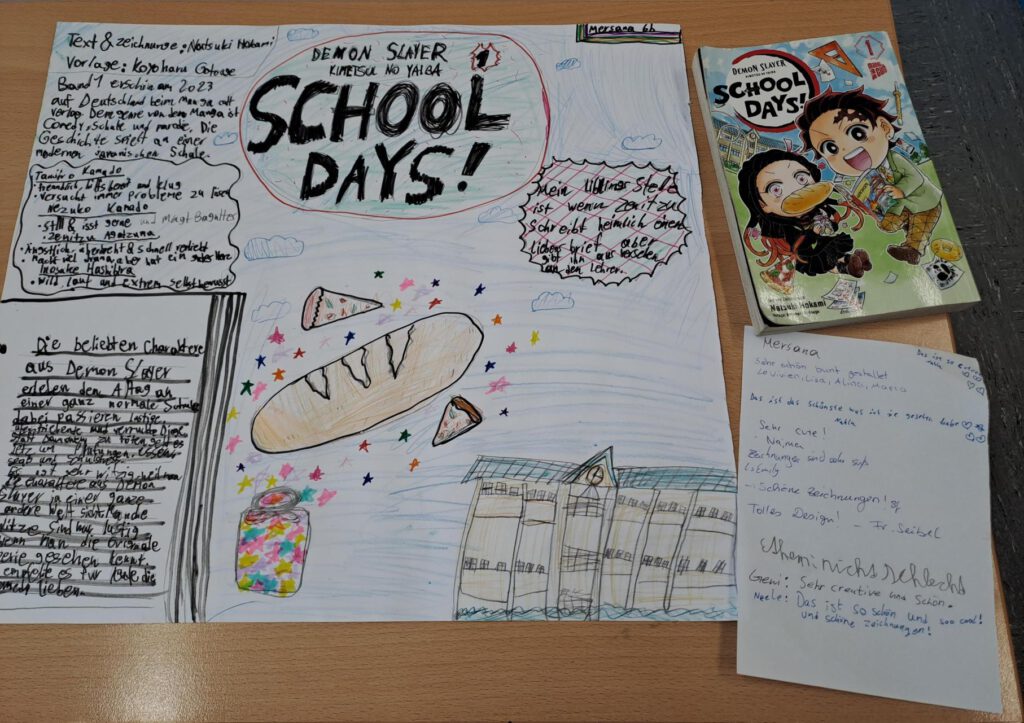 Text & Zeichnunge: Natsuki Hokami
Vorlage: Koyoharu Gotouge
Band 1 erschien am 2023
auf Deutschland beim Manga cult
Verlag. Dem genre von dem Manga ist
Comedy, Schule und parodie. Die
Geschichte spielt an einer
modernen Japanischen Schule.
Tanjiro Kamado
freundlich, hilfsbereit und klug
versucht immer probleme zu lösen
Nezuko Kamado
Still & isst gerne und mag Bagutter
Zenitsu Agatsuma
Ängstlich, überdreht & schnell verliebt
aber hat ein gutes Herz
Inosuke Hashibira
Wild, laut und extrem selbstbewusst
DEMON SLAYER
KIMETSU NO YAIBA
1
SCHOOL
DAYS!
Mersana 6b
Mein lieblings Stelle
ist wenn Zenitzu
Schreibt heimlich einen
liebes brief aber
gibt ihn aus versehen
an den Lehrer.
Die beliebten Charaktere
aus Demon Slayer
erleben den Alltag an
einer ganz normale Schule
dabei passieren lustige
und verrückte Dinge
statt Dämonen zu töten geht es
und
ist sehr witzig
die charaktere aus Demon
Slayer in einer ganze
andere Welt sieht. Manche
Witze sind nur lustig
wenn man die Originale
Serie gesehen kennt.
es für Leute die
lieben.
DEMON SLAYER
KIMETSU NO YAIBA
SCHOOL
DAYS!
1
Natsuki Hokami
Mersana
Sehr schön bunt gestaltet
Lisa, Alina, Maria
Das ist so
Das ist das schönste was ich je gesehen habe
Nahla
Sehr cute!
Naimen
Zeichnungen sind sehr süß
Emily
Schöne Zeichnungen!
Tolles Design! – Fr. Seibel
Ahem nicht schlecht
Gemi: Sehr creative und schön.
Neele: Das ist so schön und soo cool!
und schöne zeichnungen!